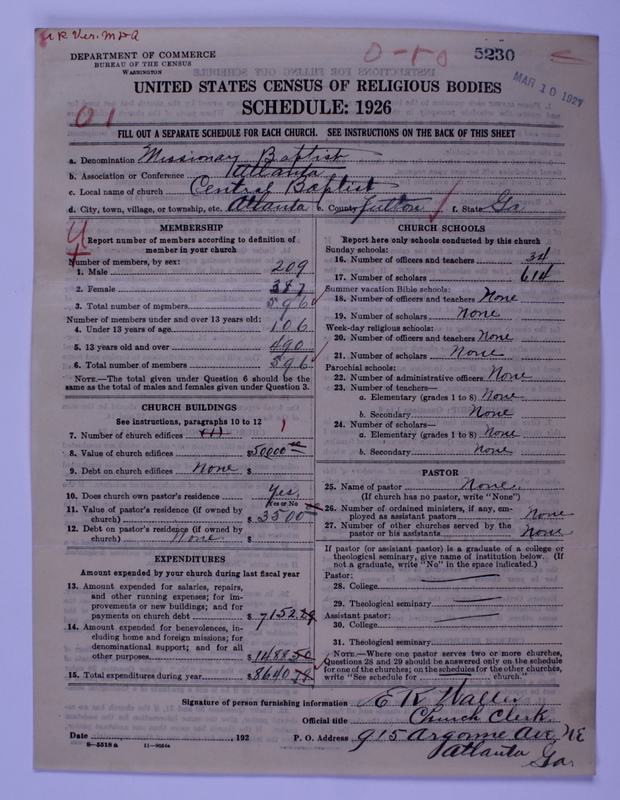 DEPARTMENT OF COMMERCE
BUREAU OF THE CENSUS
WASHINGTON
5230
MAR 10 1927
UNITED STATES CENSUS OF RELIGIOUS BODIES
SCHEDULE: 1926
01
FILL OUT A SEPARATE SCHEDULE FOR EACH CHURCH. SEE INSTRUCTIONS ON THE BACK OF THIS SHEET
a. Denomination Missionary Baptist
b. Association or Conference Atlanta
c. Local name of church Central Baptist
d. City, town, village, or township, etc. Atlanta e. County Fulton f. State Ga
MEMBERSHIP
Report number of members according to definition of
member in your church
Number of members, by sex:
1. Male 209
2. Female 387
3. Total number of members 596
Number of members under and over 13 years old:
4. Under 13 years of age 106
5. 13 years old and over 490
6. Total number of members 596
NOTE.—The total given under Question 6 should be the
same as the total of males and females given under Question 3.
CHURCH BUILDINGS
See instructions, paragraphs 10 to 12
7. Number of church edifices (1) 1
8. Value of church edifices $50000.00
9. Debt on church edifices None $
10. Does church own pastor's residence Yes
Yes or No
11. Value of pastor's residence (if owned by
church) $ 3500
12. Debt on pastor's residence (if owned by
church) None $
EXPENDITURES
Amount expended by your church during last fiscal year
13. Amount expended for salaries, repairs,
and other running expenses; for im-
provements or new buildings; and for
payments on church debt $ 7152.
14. Amount expended for benevolences, in-
cluding home and foreign missions; for
denominational support; and for all
other purposes $ 1488
15. Total expenditures during year $ 8640
CHURCH SCHOOLS
Report here only schools conducted by this church
Sunday schools:
16. Number of officers and teachers 34
17. Number of scholars 614
Summer vacation Bible schools:
18. Number of officers and teachers None
19. Number of scholars None
Week-day religious schools:
20. Number of officers and teachers None
21. Number of scholars None
Parochial schools:
22. Number of administrative officers None
23. Number of teachers—
a. Elementary (grades 1 to 8) None
b. Secondary None
24. Number of scholars—
a. Elementary (grades 1 to 8) None
b. Secondary None
PASTOR
25. Name of pastor None
(If church has no pastor, write "None")
26. Number of ordained ministers, if any, em-
ployed as assistant pastors None
27. Number of other churches served by the
pastor or his assistants None
If pastor (or assistant pastor) is a graduate of a college or
theological seminary, give name of institution below. (If
not a graduate, write "No" in the space indicated.)
Pastor:
28. College
29. Theological seminary
Assistant pastor:
30. College
31. Theological seminary
NOTE.—Where one pastor serves two or more churches,
Questions 28 and 29 should be answered only on the schedule
for one of the churches; on the schedules for the other churches,
write "See schedule for church."
Signature of person furnishing information E K Waller
Official title Church Clerk
Date , 192 P. O. Address 915 Argonne Ave NE
Atlanta Ga.